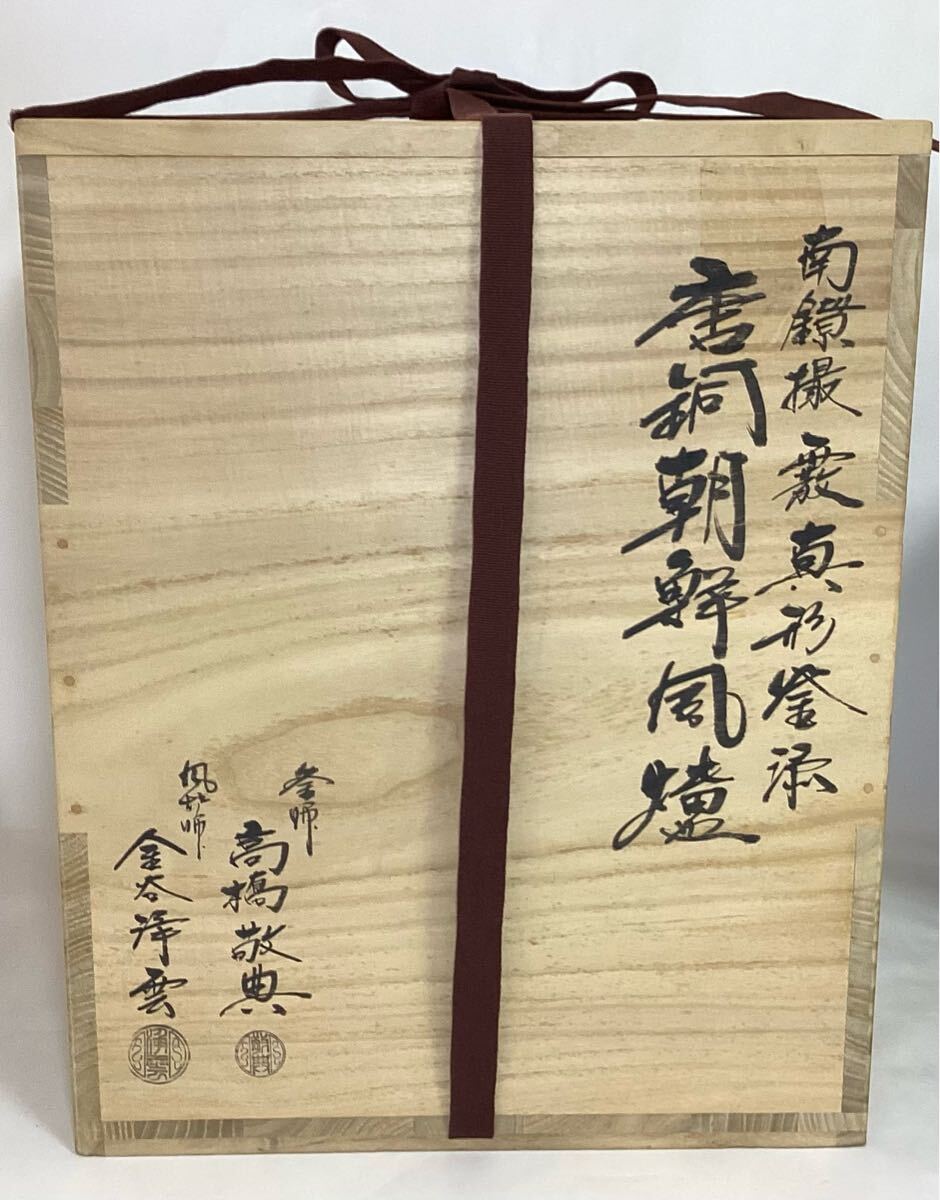 南鐐撮 霰真形釜添
唐銅朝鮮風爐
釜師
高橋敬典
風炉師
金谷浄雲
浄雲